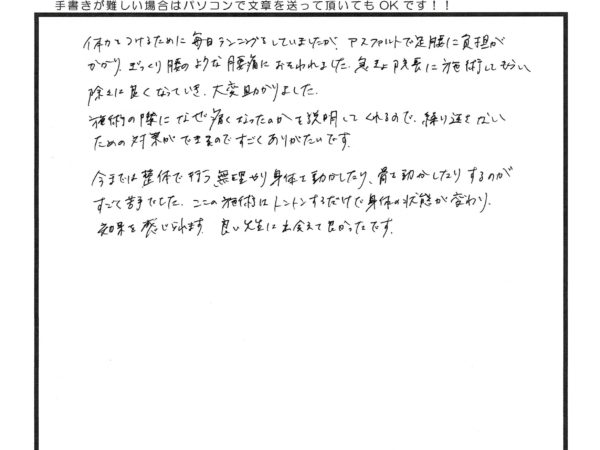 手書きが難しい場合はパソコンで文章を送って頂いてもOKです！！
体力をつけるために毎日ランニングをしていましたが、アスファルトで足腰に負担が
かかり、ぎっくり腰のような腰痛におそわれました。急きょ院長に施術してもらい
除々に良くなっていき、大変助かりました。
施術の際になぜ痛くなったのかを説明してくれるので、繰り返さない
ための対策ができるのですごくありがたいです。
今までは整体で行う無理やり身体を動かしたり、骨を動かしたりするのが
すごく苦手でした。ここの施術はトントンするだけで身体の状態が変わり、
効果を感じられます。良い先生に出会えて良かったです。